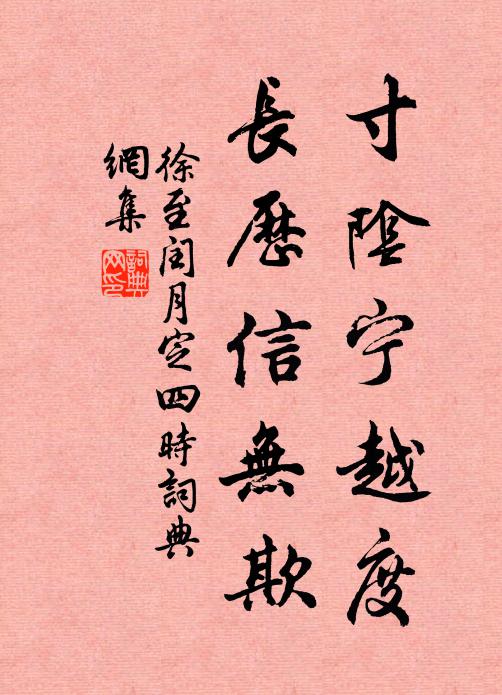 寸陰宁越度
長歷信無欺
徐至閏月定四時詞典
網集
詞典
网印